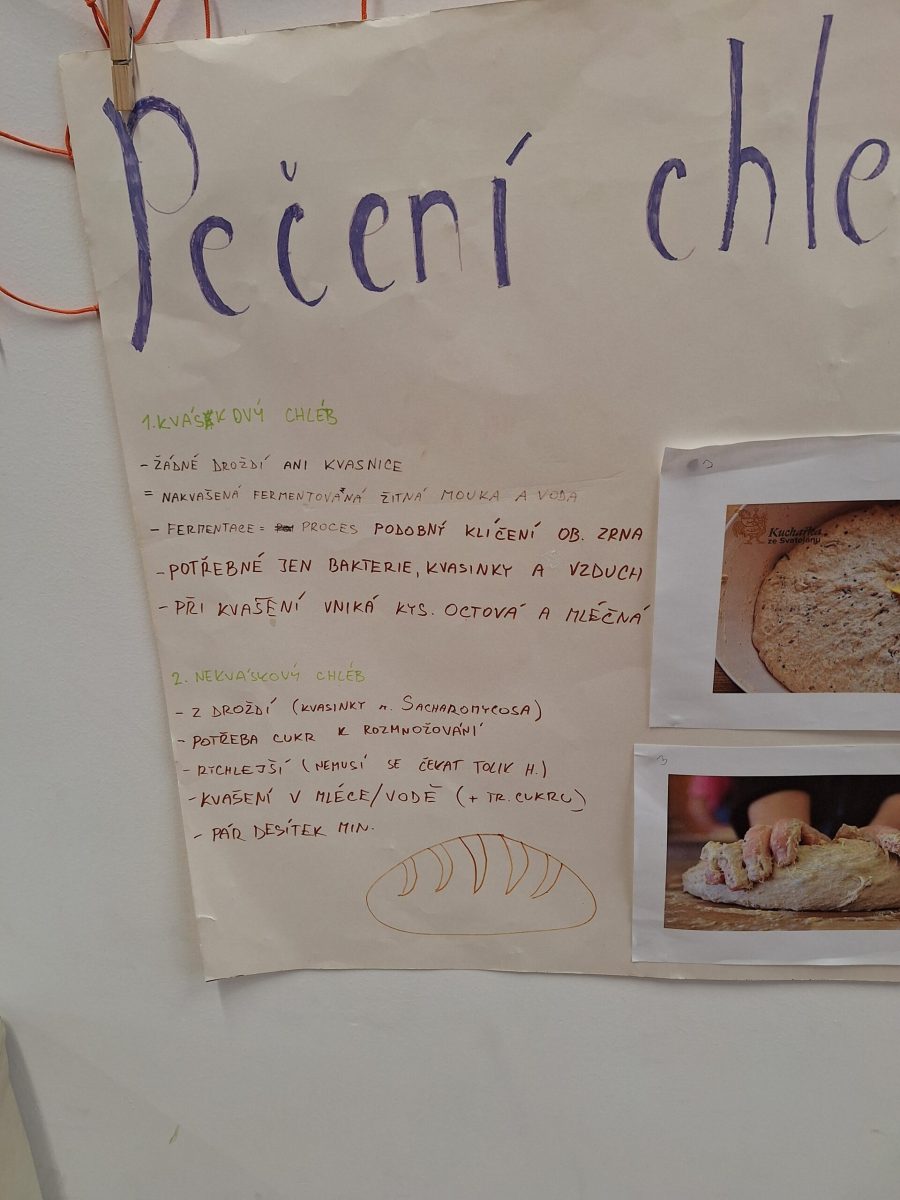 Pečení chle
1. KVÁSKOVÝ CHLÉB
- ŽÁDNÉ DROŽDÍ ANI KVASNICE
= NAKVAŠENÁ FERMENTOVANÁ ŽITNÁ MOUKA A VODA
- FERMENTACE = PROCES PODOBNÝ KLÍČENÍ OB. ZRNA
- POTŘEBNÉ JEN BAKTERIE, KVASINKY A VZDUCH
- PŘI KVAŠENÍ VNIKÁ KYS. OCTOVÁ A MLÉČNÁ
2. NEKVÁSKOVÝ CHLÉB
- Z DROŽDÍ (KVASINKY r. SACHAROMYCOSA)
- POTŘEBA CUKR K ROZMNOŽOVÁNÍ
- RYCHLEJŠÍ (NEMUSÍ SE ČEKAT TOLIK H.)
- KVAŠENÍ V MLÉCE/VODĚ (+ TR. CUKRU)
- PÁR DESÍTEK MIN.
Kuchařka
ze Svatojánu